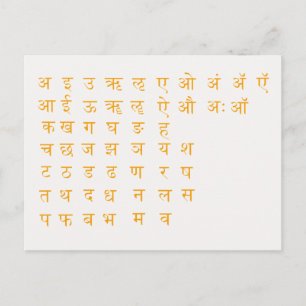 अ इ उ ऋ ऌ ए ओ अं ॲ ऍ
आ ई ऊ ॠ ॡ ऐ औ अः ऑ
क ख ग घ ङ ह
च छ ज झ ञ य श
ट ठ ड ढ ण र ष
त थ द ध न ल स
प फ ब भ म व